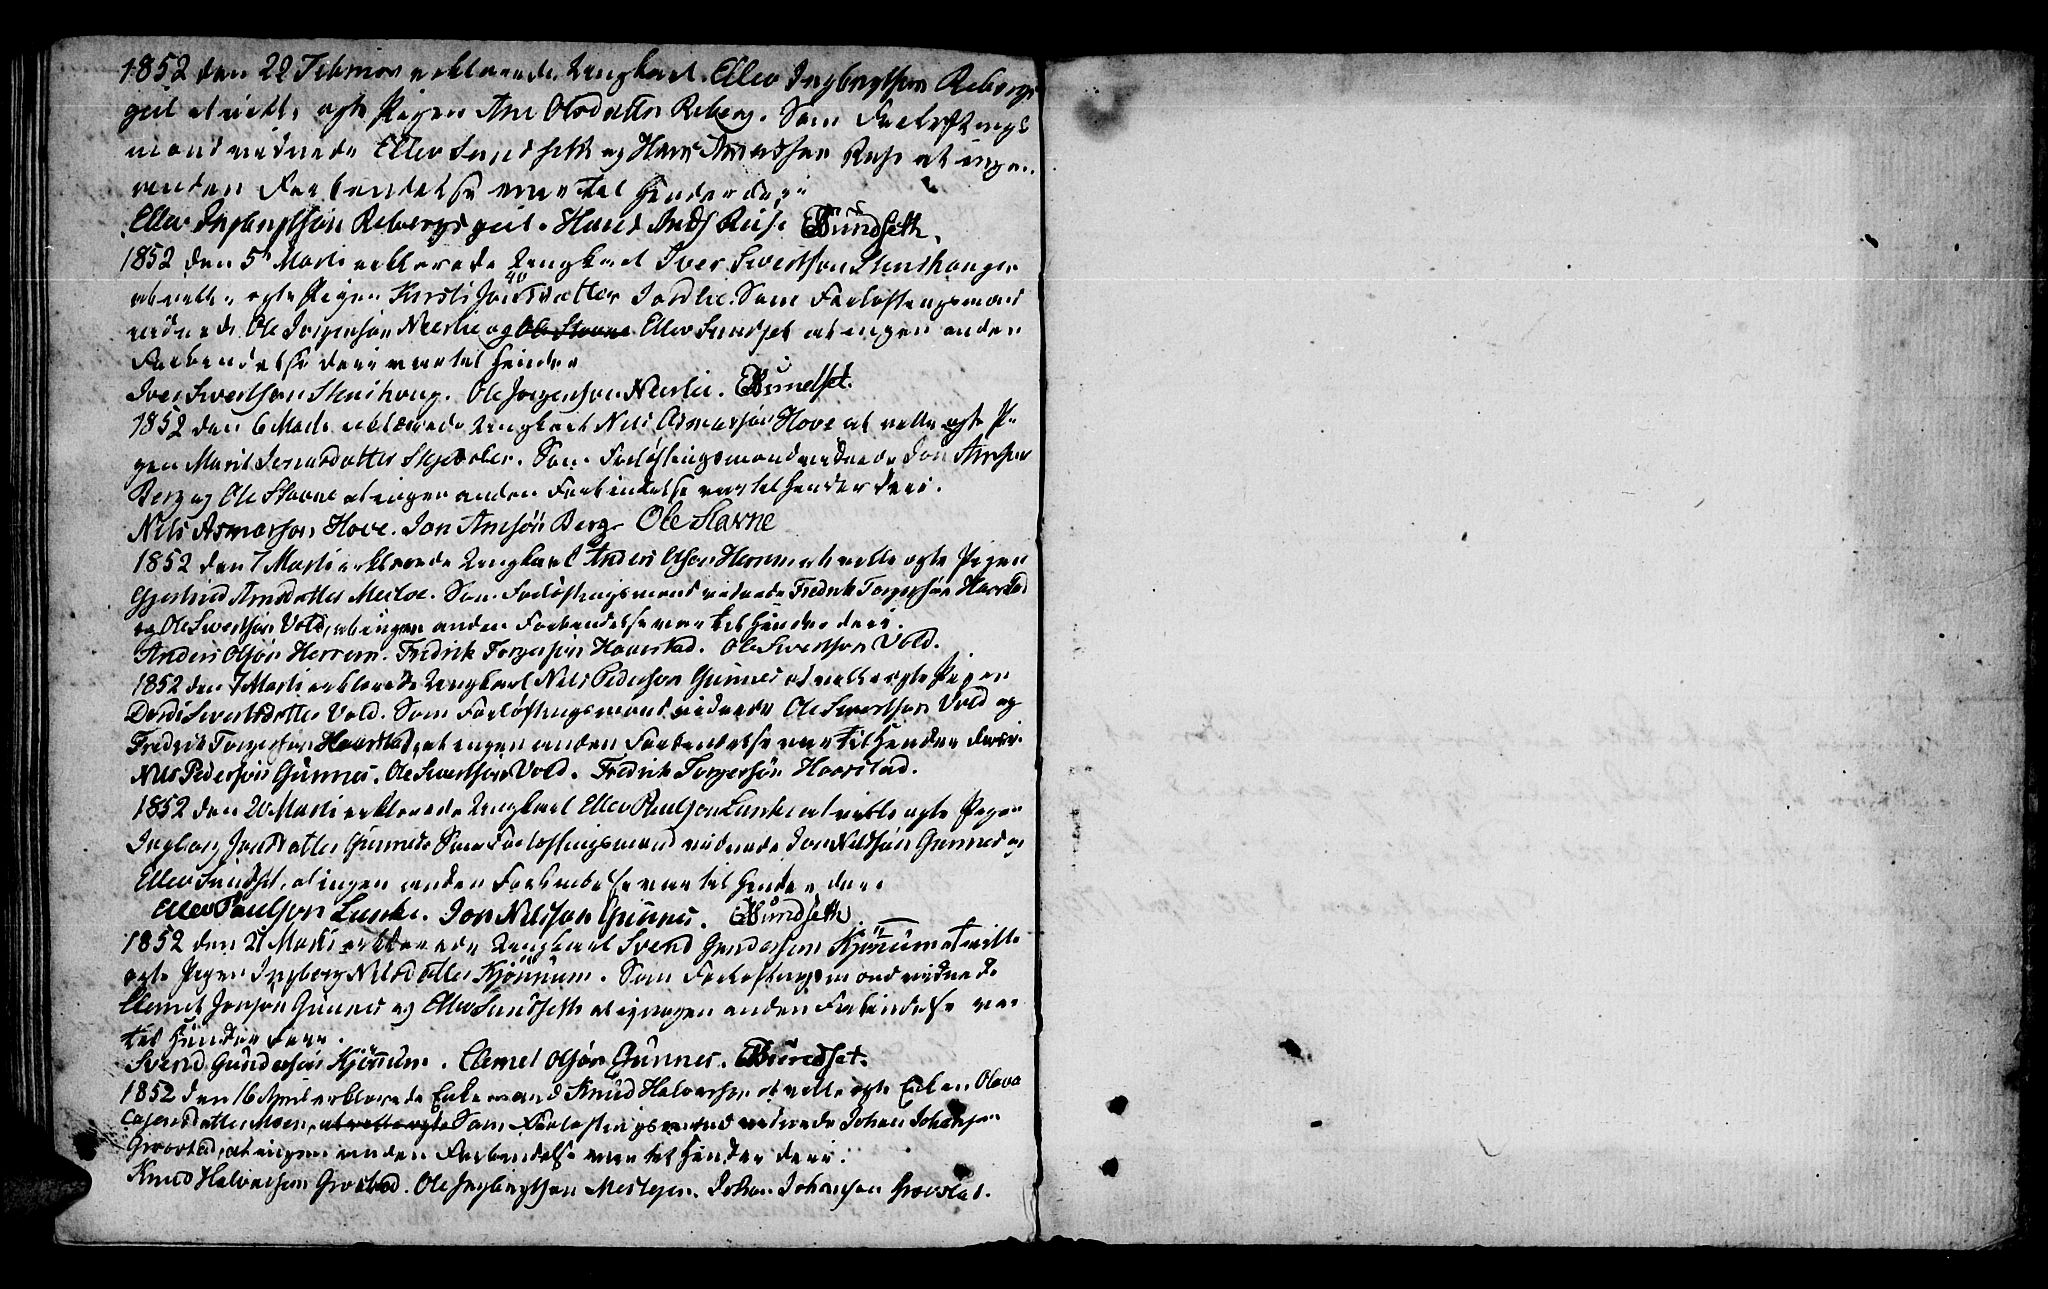 1852 den 22 Februar erklærede Ungkarl Ellev Ingbrigtson Rebergs
geil at ville egte Pigen Ane Olsdatter Reberg. Som Forloftnings
mand vidnede Ellev Sundseth og Hans Andersson Riise at ingen
anden Forbendelse var til Hender deri
Ellev Ingbrigtson Rebergsgeil. Hans Andς Riise ESundseth.
1852 den 5 Marti erklærede Ungkarl Iver Sivertson Stenshauge
at ville egte Pigen Kirsti Jonsdatter Jordlie. Som Forloftningsmand
vidnede Ole Jorgensøn Neerlie og Ole Stavne Ellev Sundset at ingen anden
Forbendelse deri var til Hinder
Iver Sivertson Stenshaug. Ole Jorgenson Neerlie. ESundset.
1852 den 6 Marti erklærede Ungkarl Nils Asmarson Hove at ville egte Pi
gen Marit Jensdatter Skjerber. Som Forløftingsmand vidnede Jon Arneson
Berg og Ole Stavne at ingen anden Forbindelse var til Hender deri.
Nils Asmarson Hove. Jon Arnesøn Berg. Ole Stavne
1852 den 7 Marti erklærede Ungkarl Anders Olsen Herrem at ville egte Pigen
Gjertrud Arnsdatter Merloe. Som Forløftingsmand vidnede Fredrik Torgersøn Haarstad
og Ole Sivertson Vold, at ingen anden Forbendelse var til Hinder deri.
Anders Olsøn Herrem. Fredrik Torgersøn Haarstad. Ole Sivertson Vold.
1852 den 7 Marti erklærede Ungkarl Nils Pederson Gunnes at ville egte Pigen
Dordi Sivertsdatter Vold. Som Forløftingsmand vidnede Ole Sivertson Vold og
Fredrik Torgerson Haarstad, at ingen anden Forbendelse var til Hender deri.
Nils Pedersøn Gunnes. Ole Sivertsøn Vold. Fredrik Torgersøn Haarstad.
1852 den 20 Marti erklærede Ungkarl Ellev Paulson Lunke at ville egte Pigen
Ingborg Jonsdatter Gunnes Som Forloftingsmand vidnede Jon Nilssøn Gunnes og
Ellev Sundset, at ingen anden Forbendelse var til Hinder deri
Ellev Paulson Lunke. Jon Nilsson Gunnes. ESundseth
1852 den 21 Marti erklærede Ungkarl Svend Gunderson Kjønnum at ville
egte Pigen Ingborg Nilsdatter Kjønnum. Som Forloftingsmand vidnede
Clemet Jonsøn Gunnes og Ellev Sundseth at ingen anden Forbindelse var
til Hinder deri.
Svend Gundersøn Kjønnum. Clemet Olsøn Gunnes. ESundset.
1852 den 16 April erklærede Enkemand Knud Halverson at ville egte Enken Olava
datter Moen, at ville egte Som Forloftingsmand vidnede Johan Johanson
Gravstad, at ingen anden Forbendelse var til Hinder deri.
Knud Halverson Gravstad. Ole Ingbrigtson. Johan Johanson Gravstad.